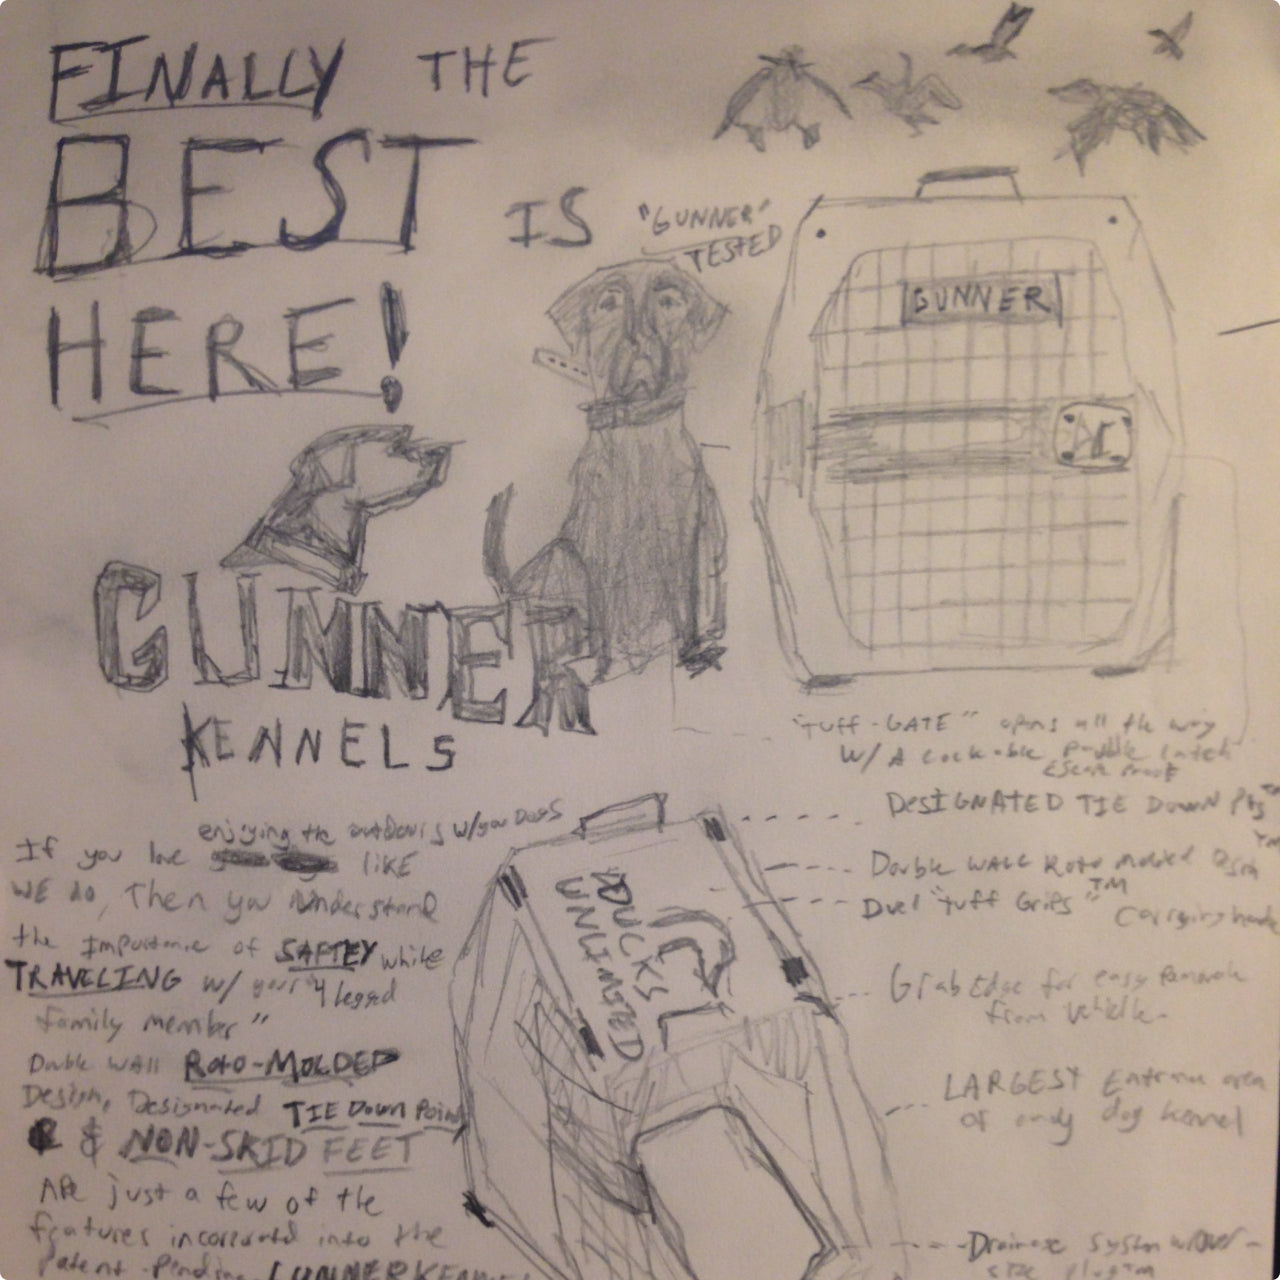 FINALLY THE
BEST IS
HERE!
"GUNNER"
TESTED
GUNNER
GUNNER
KENNELS
"TUFF-GATE" opens all the way
W/ A Lock-able Paddle latch
Escape Proof
DESIGNATED TIE DOWN
Double WALL Roto Molded
Duel "Tuff Grips"™ Carrying
Grab Edge for easy Removal
from Vehicle-
LARGEST Entrance area
of andy dog kennel
Drainage System w/over-
size plug
DUCKS
UNLIMITED
enjoying the outdoors w/you Dogs
If you love LIKE
WE do, Then you Understand
the Importanc of SAFTEY while
TRAVELING w/ your 4 legged
family member"
Double WAll ROTO-MOLDED
Design, Designated TIE Down Points
& NON-SKID FEET
ARe just a few of the
features incorporated into the
Patent-Pending GUNNER KENNEL